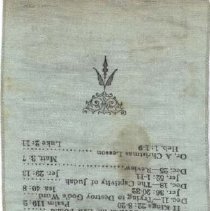 Kings 22:8-20 Psalm 119:9
Dec. 11—Trying to Destroy God's Word
Jer. 36:20-32 Isa. 40:8
Dec. 18. The Captivity of Judah
Jer. 52:1-11 Jer. 29:13
Dec. 25—Review Matt.
Or, Christmas Lesson
Heb. 1:1-9 Luke 2:11